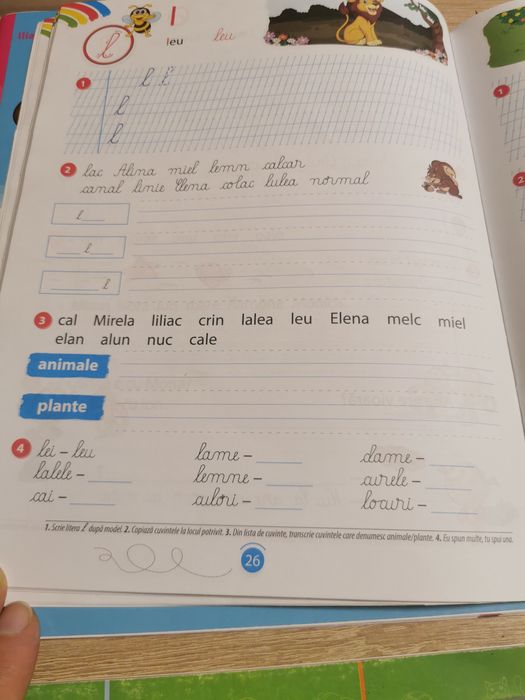 Ilia
l
l
leu
leu
1
l l
l
l
2 lac Alina miel lemn calcar
canal linie Elena colac lulea normal
l
l
l
3 cal Mirela liliac crin lalea leu Elena melc miel
elan alun nuc cale
animale
plante
4 lei – leu lame – dame –
lalele – lemne – aurele –
cai – culori – locuri –
1. Scrie litera l după model. 2. Copiază cuvintele la locul potrivit. 3. Din lista de cuvinte, transcrie cuvintele care denumesc animale/plante. 4. Eu spun multe, tu spui una.
26
1
2